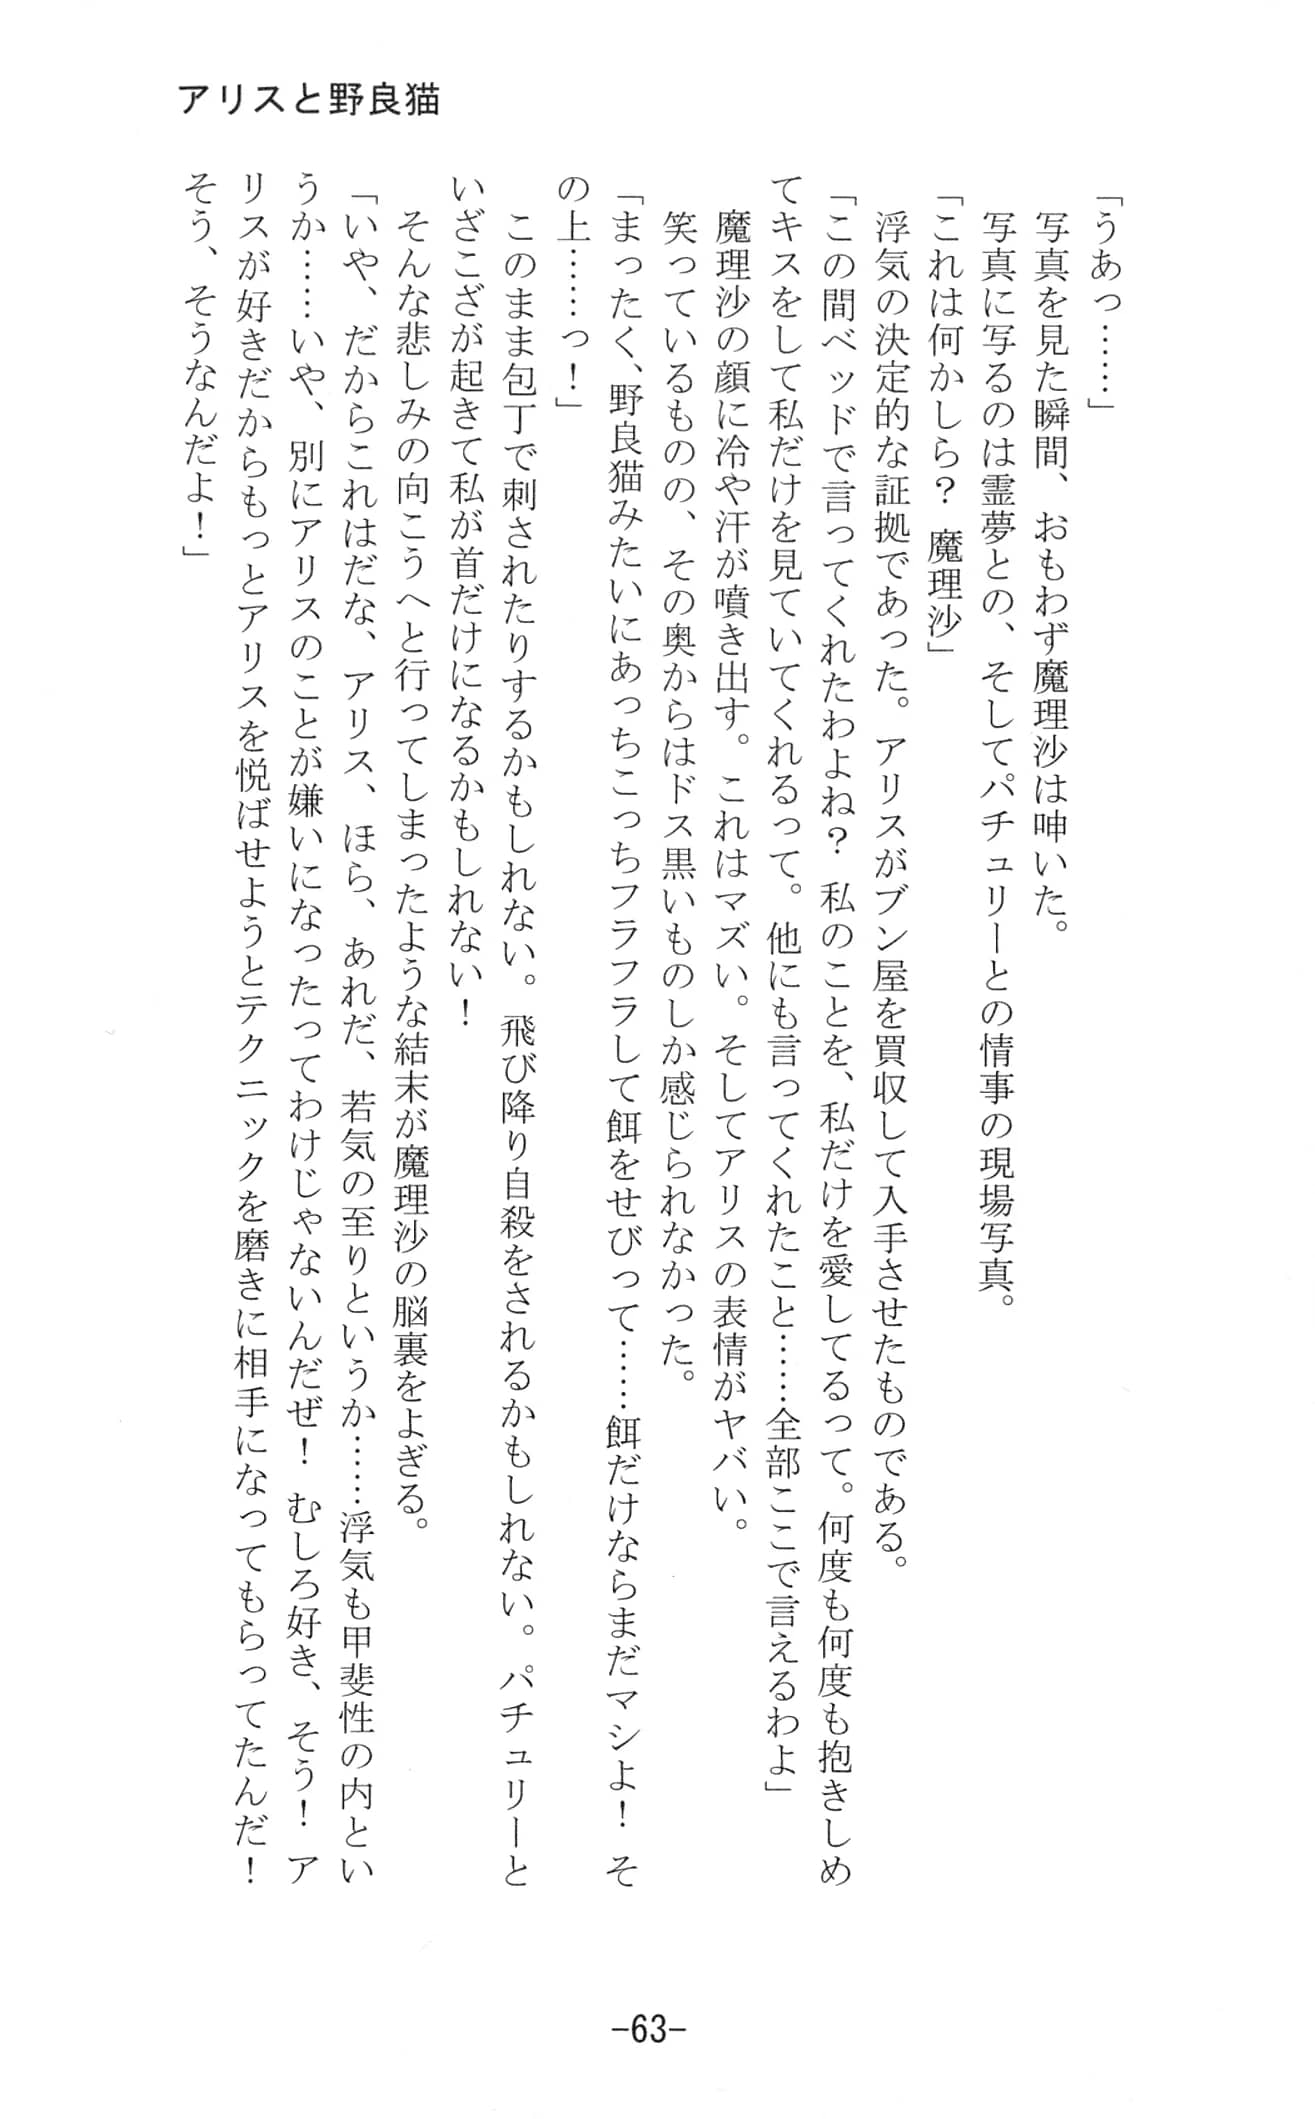 アリスと野良猫
「うあっ……」
　写真を見た瞬間、おもわず魔理沙は呻いた。
　写真に写るのは霊夢との、そしてパチュリーとの情事の現場写真。
「これは何かしら？　魔理沙」
　浮気の決定的な証拠であった。アリスがブン屋を買収して入手させたものである。
「この間ベッドで言ってくれたわよね？　私のことを、私だけを愛してるって。何度も何度も抱きしめ
てキスをして私だけを見ていてくれるって。他にも言ってくれたこと……全部ここで言えるわよ」
　魔理沙の顔に冷や汗が噴き出す。これはマズい。そしてアリスの表情がヤバい。
　笑っているものの、その奥からはドス黒いものしか感じられなかった。
「まったく、野良猫みたいにあっちこっちフラフラして餌をせびって……餌だけならまだマシよ！　そ
の上……っ！」
　このまま包丁で刺されたりするかもしれない。飛び降り自殺をされるかもしれない。パチュリーと
いざこざが起きて私が首だけになるかもしれない！
　そんな悲しみの向こうへと行ってしまったような結末が魔理沙の脳裏をよぎる。
「いや、だからこれはだな、アリス、ほら、あれだ、若気の至りというか……浮気も甲斐性の内とい
うか……いや、別にアリスのことが嫌いになったってわけじゃないんだぜ！　むしろ好き、そう！　ア
リスが好きだからもっとアリスを悦ばせようとテクニックを磨きに相手になってもらってたんだ！
そう、そうなんだよ！」
-63-